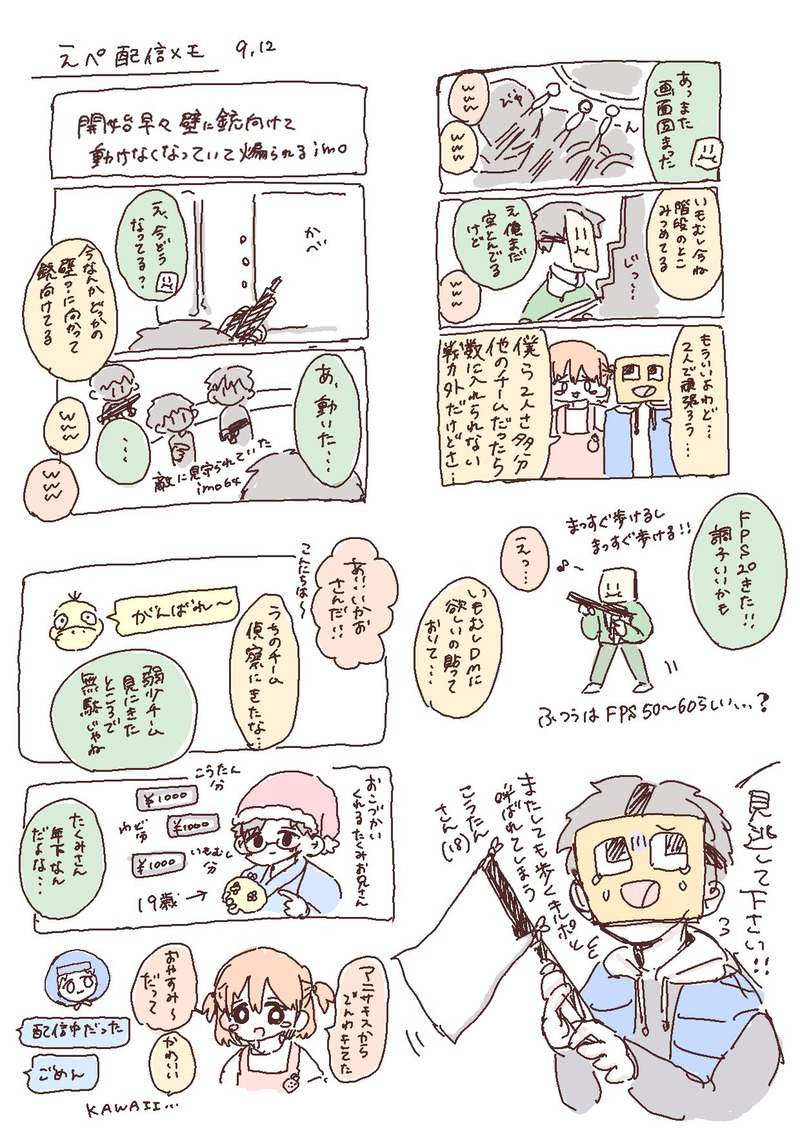 えぺ配信メモ 9.12
開始早々壁に銃向けて
動けなくなっていて煽られるimo
え、今どう
なってる?
かべ
今なんかどっかの
壁?に向かって
銃向けてる
あ、動いた…
・・・
www
www
敵に見守られていた
imo64
あっまた
画面固まった
www
www
びゅ
ん
いもむし今ね
階段のとこ
みつめてる
え俺まだ
空とんでる
けど
じっ…
www
もういいよわど…
2人で頑張ろう…
僕ら2人さ多分
他のチームだったら
数に入れられない
戦力外だけどさ…
こんにちは〜
あ!!いかお
さんだ!!
がんばれ〜
うちのチーム
偵察にきたな…
弱少チーム
見にきた
ところで
無駄じゃね
FPS20きた!!
調子いいかも
まっすぐ歩けるし
まっすぐ歩ける!!
えっ…
いもむしDMに
欲しいの貼って
おいて…
ふつうはFPS50〜60らしい…?
おこづかい
くれるたくみお兄さん
こうたん
分
¥1000
わど分
¥1000
いもむし
分
¥1000
19歳→
たくみさん
年下なん
だよな…
見逃して下さい!!
またしても歩くキルポと
呼ばれてしまう
こうたん
さん(18)
アニサキスから
でんわきてた
おやすみ〜
だって
かわいい
配信中だった
ごめん
KAWAII…